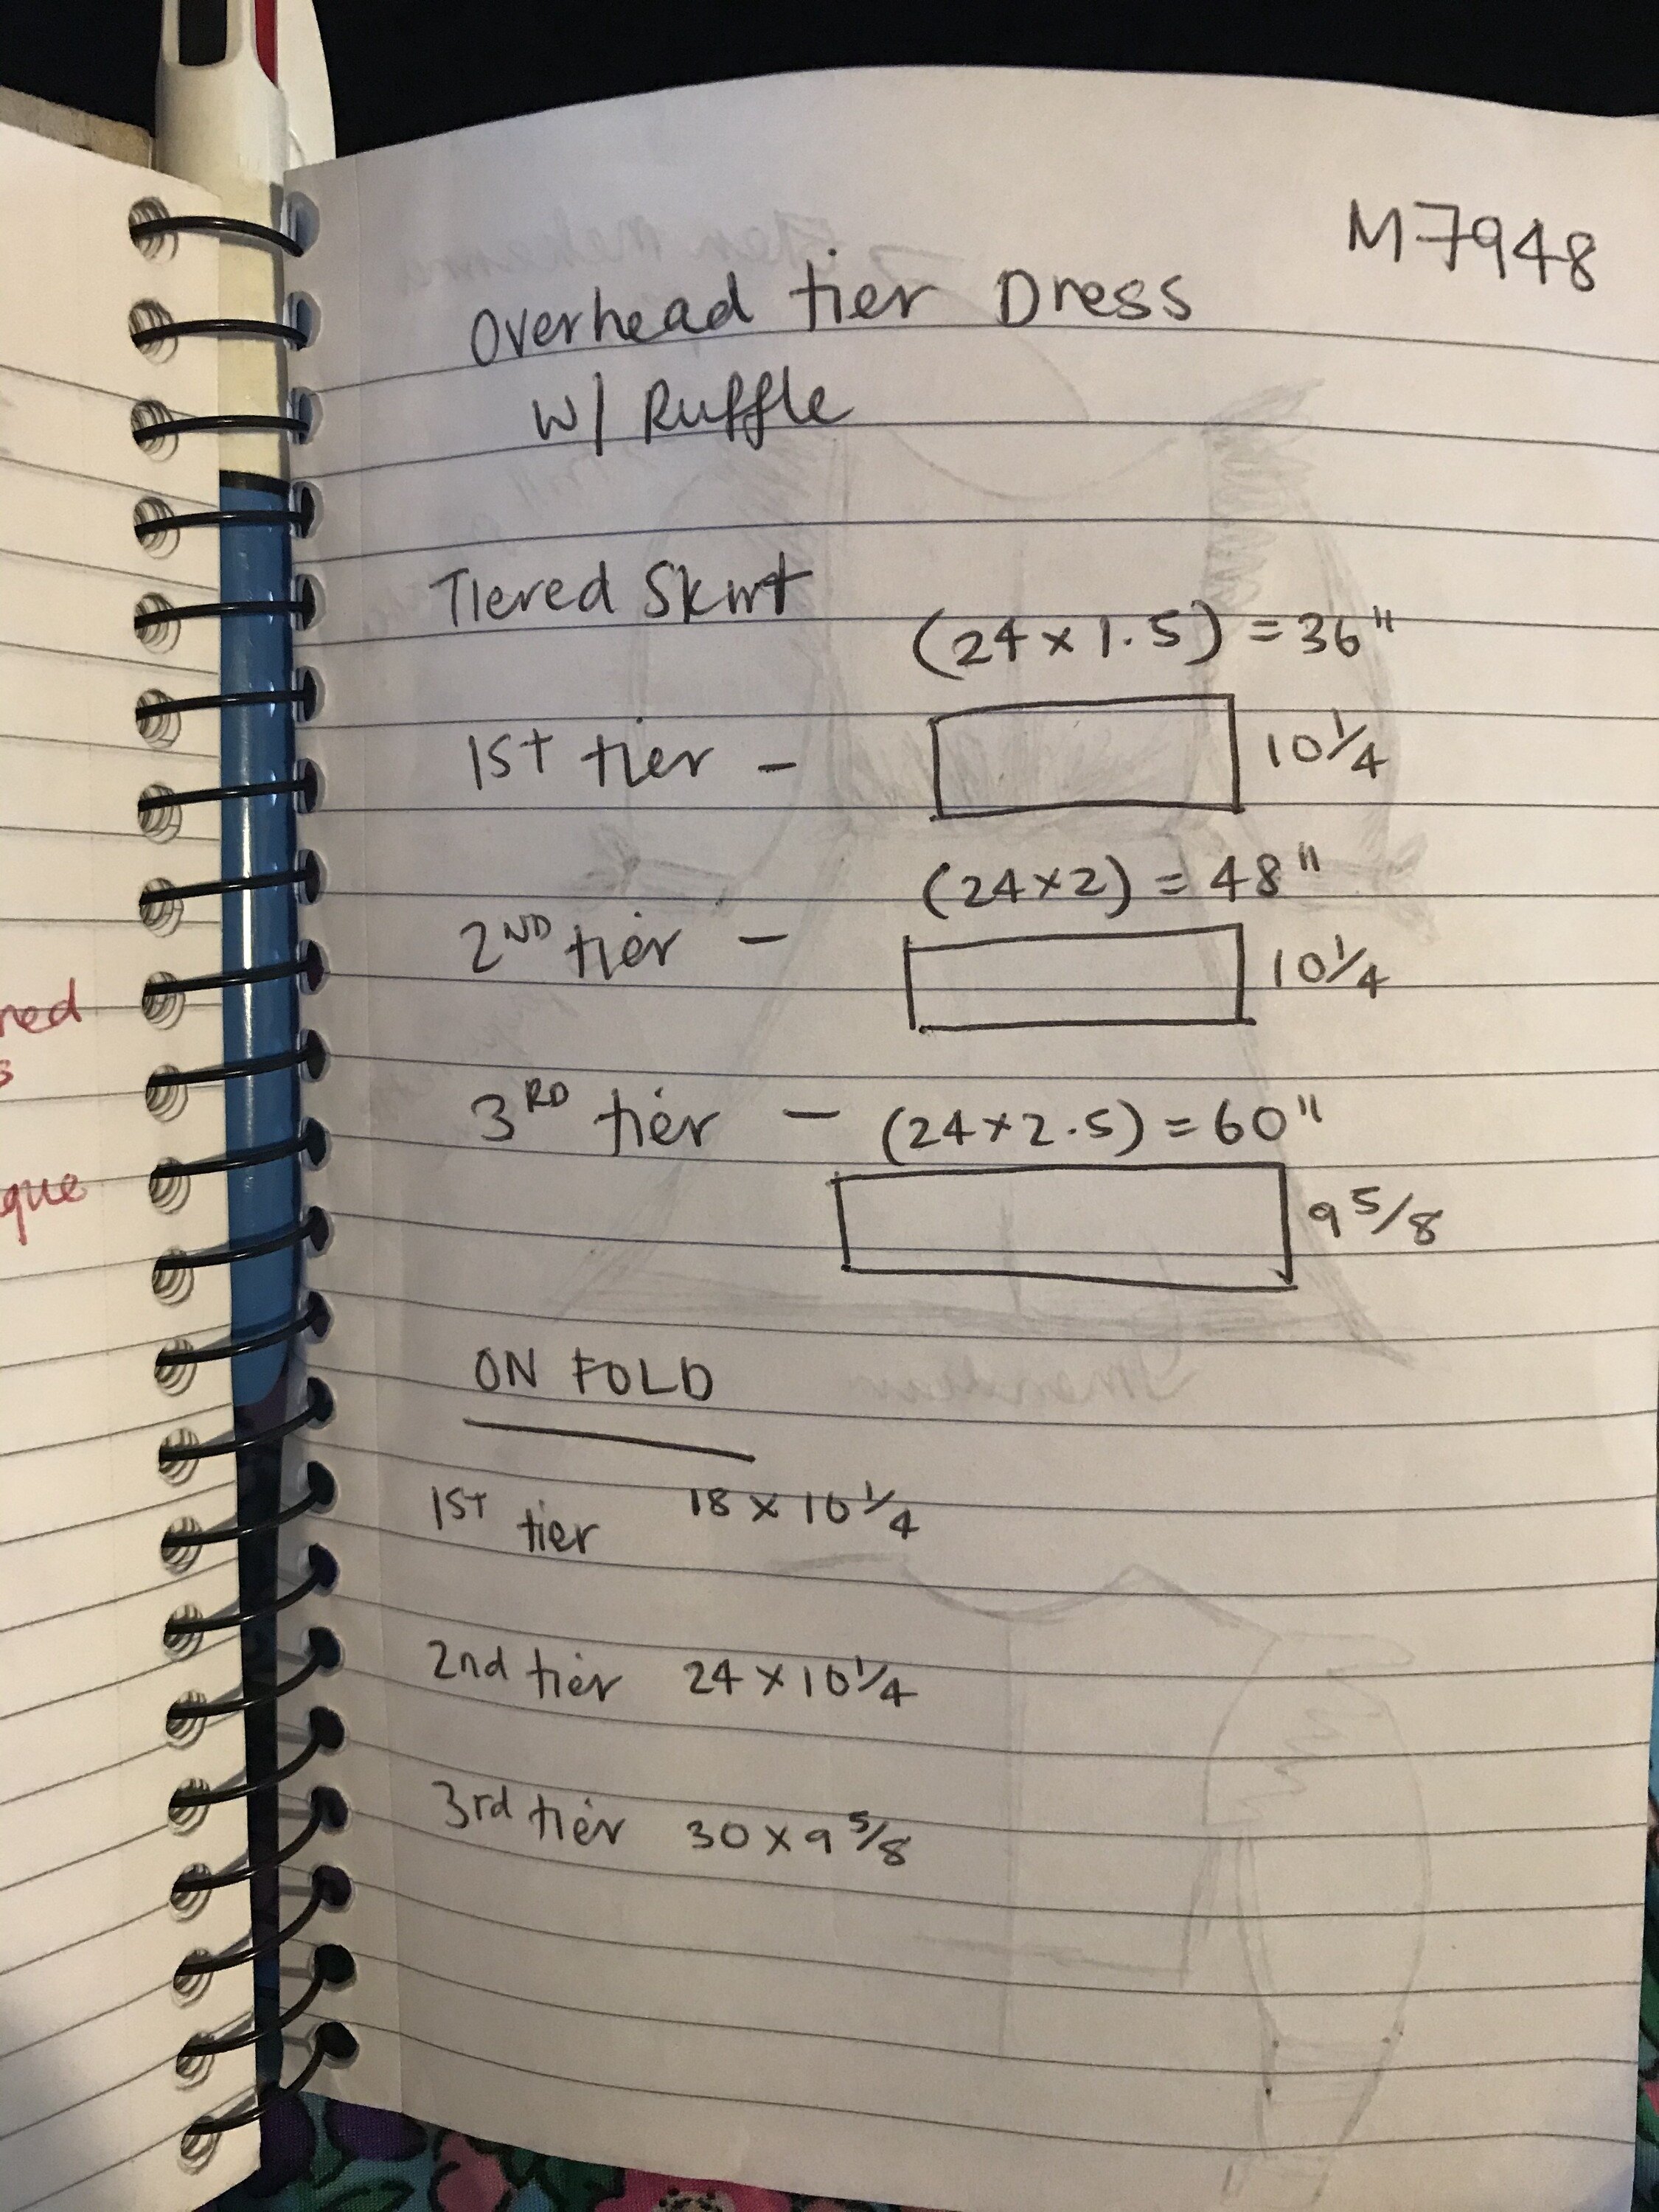 M7948
Overhead tier Dress
W/ Ruffle
Tiered Skirt
(24 x 1.5) = 36"
1ST tier - 10 1/4
(24x2) = 48"
2ND tier - 10 1/4
3RD tier - (24x2.5) = 60"
9 5/8
ON FOLD
1ST tier 18 x 10 1/4
2nd tier 24 x 10 1/4
3rd tier 30 x 9 5/8